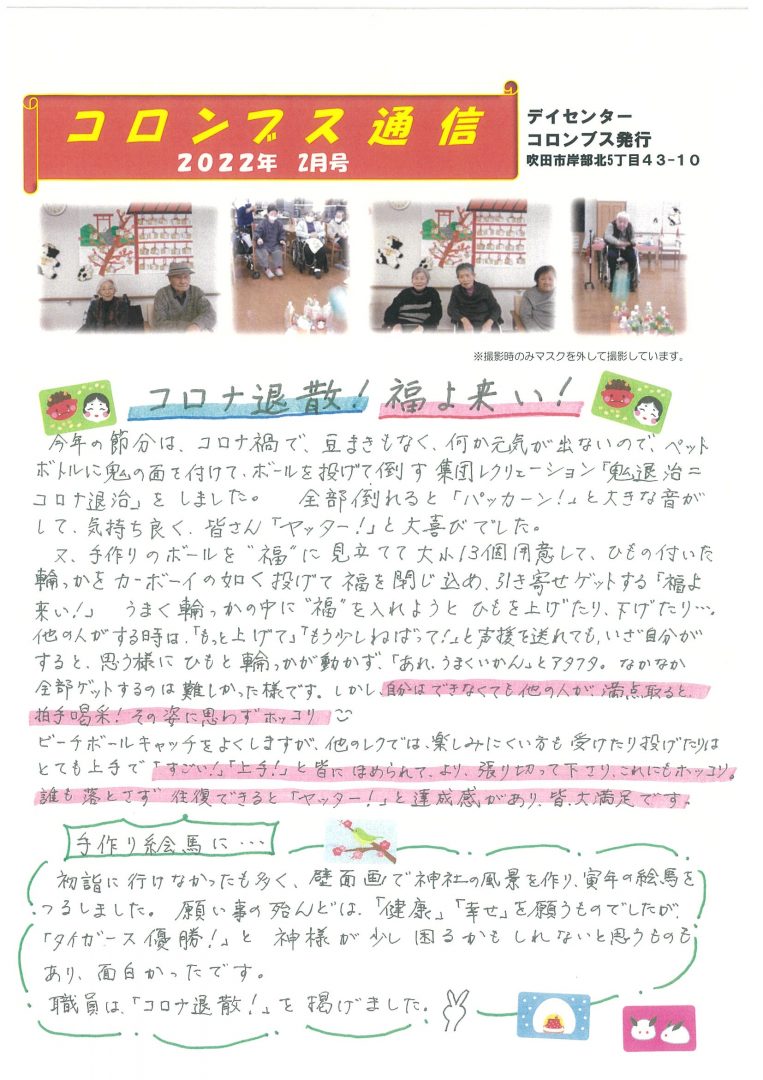 コロンブス通信
2022年 2月号
デイセンター
コロンブス発行
吹田市岸部北5丁目43-10
※撮影時のみマスクを外して撮影しています。
コロナ退散! 福よ来い!
今年の節分は、コロナ禍で、豆まきもなく、何か元気が出ないので、ペット
ボトルに鬼の面を付けて、ボールを投げて倒す集団レクリェーション「鬼退治=
コロナ退治」をしました。 全部倒れると「パッカーン!」と大きな音が
して、気持ち良く、皆さん「ヤッター!」と大喜びでした。
又、手作りのボールを“福”に見立てて大小13個用意して、ひもの付いた
輪っかをカーボーイの如く投げて福を閉じ込め、引き寄せゲットする「福よ
来い!」 うまく輪っかの中に“福”を入れようとひもを上げたり、下げたり…。
他の人がする時は、「もっと上げて」「もう少しねばって!」と声援を送れても、いざ自分が
すると、思う様にひもと輪っかが動かず、「あれ、うまくいかん」とアタフタ。なかなか
全部ゲットするのは難しかった様です。しかし、自分はできなくても他の人が、満点取ると、
拍手喝采!その姿に思わずホッコリ
ビーチボールキャッチをよくしますが、他のレクでは、楽しみにくい方も受けたり投げたりは
とても上手で「すごい!」「上手!」と皆にほめられて、より、張り切って下さり、これにもホッコリ。
誰も落とさず往復できると「ヤッター!」と達成感があり、皆、大満足です。
手作り絵馬に…
初詣に行けなかった方も多く、壁面画で神社の風景を作り、寅年の絵馬を
つるしました。願い事の殆んどは、「健康」「幸せ」を願うものでしたが、
「タイガース優勝!」と神様が少し困るかもしれないと思うものも
あり、面白かったです。
職員は、「コロナ退散!」を掲げました。